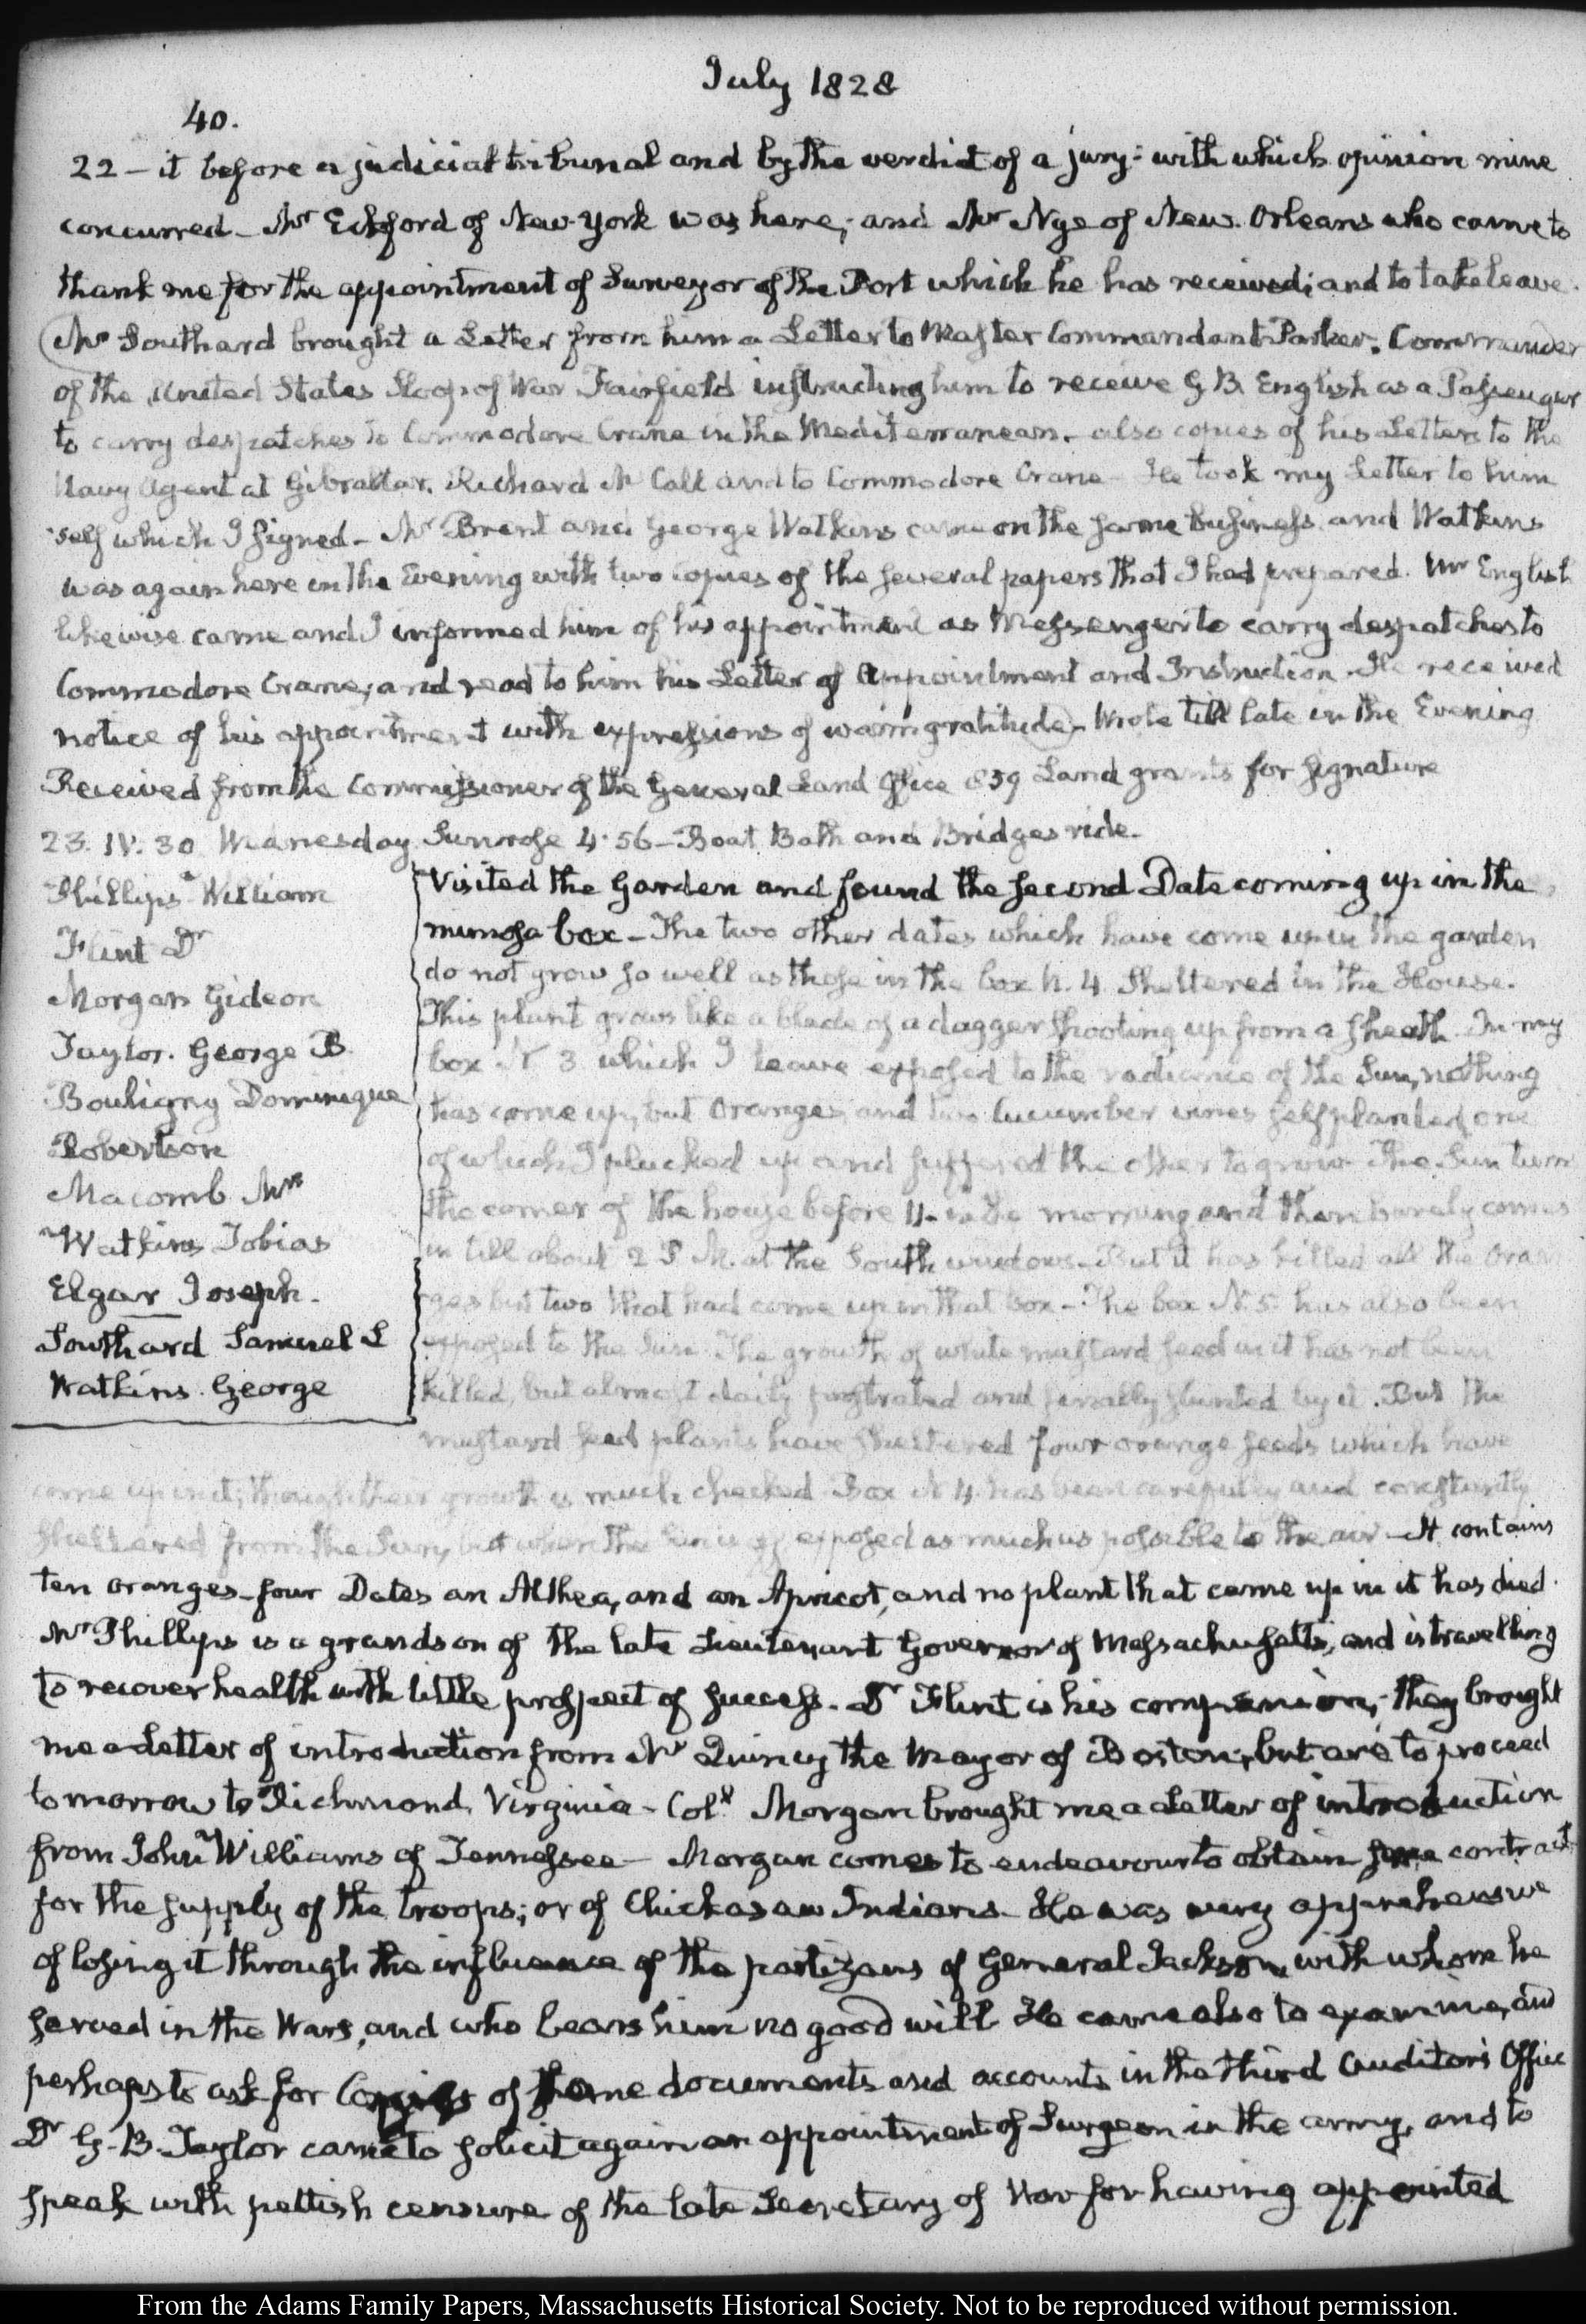 July 1828
40.
22 – it before a judicial tribunal and by the verdict of a jury: with which opinion mine
concurred – Mr Eckford of New-York was here; and Mr Nye of New-Orleans who came to
thank me for the appointment of Surveyor of the Port which he has received; and to take leave.
Mr Southard brought a Letter from him a Letter to Master Commandant Parker, Commander
of the United States Sloop of War Fairfield instructing him to receive G B. English as a Passenger
to carry despatches to Commodore Crane in the Mediterranean. also copies of his Letters to the
Navy Agent at Gibraltar, Richard McCall and to Commodore Crane – He took my Letter to him
self which I signed – Mr Brent and George Watkins came on the same business and Watkins
was again here in the Evening with two copies of the several papers that I had prepared. Mr English
likewise came and I informed him of his appointment as Messenger to carry despatches to
Commodore Crane; and read to him his Letter of Appointment and Instruction. He received
notice of his appointment with expressions of warm gratitude – Wrote till late in the Evening
Received from the Commissioner of the General Land Office 839 Land grants for signature
23. IV: 30 Wednesday Sun rose 4:56 – Boat Bath and Bridges ride.
Phillips William
Flint Dr
Morgan Gideon
Taylor. George B.
Bouligny Dominique
Robertson
Macomb Mrs
Watkins Tobias
Elgar Joseph.
Southard Samuel L
Watkins. George
Visited the Garden and found the second Date coming up in the
mimosa box – The two other dates which have come up in the garden
do not grow so well as those in the box N. 4 sheltered in the House.
This plant grows like a blade of a dagger shooting up from a sheath. In my
box N 3 which I leave exposed to the radiance of the Sun, nothing
has come up, but Oranges, and two Cucumber vines self planted, one
of which I plucked up and suffered the other to grow. The Sun turns
the corner of the house before 11. in the morning and then barely comes
in till about 2 P. M. at the South windows – But it has killed all the Oran
ges but two that had come up in that box – The box N. 5. has also been
exposed to the Sun. The growth of white mustard seed in it has not been
killed, but almost daily prostrated and finally stunted by it. But the
mustard seed plants have sheltered four orange seeds which have
come up in it; though their growth is much checked. Box N 4. has been carefully and constantly
sheltered from the Sun, but when the Sun is off exposed as much as possible to the air – It contains
ten oranges – four Dates an Althea, and an Apricot, and no plant that came up in it has died.
Mr Phillips is a grandson of the late Lieutenant Governor of Massachusetts, and is travelling
to recover health with little prospect of success. Dr Flint is his companion; they brought
me a Letter of introduction from Mr Quincy the Mayor of Boston; but are to proceed
tomorrow to Richmond, Virginia – Coll Morgan brought me a Letter of introduction
from John Williams of Tennessee – Morgan comes to endeavour to obtain some contract
for the supply of the troops; or of Chickasaw Indians – He was very apprehensive
of losing it through the influence of the partizans of General Jackson, with whom he
served in the Wars, and who bears him no good will. He came also to examine, and
perhaps to ask for Copies of some documents and accounts in the third Auditor's Office
Dr G. B. Taylor came to solicit again an appointment of Surgeon in the army, and to
speak with pettish censure of the late Secretary of War for having appointed
From the Adams Family Papers, Massachusetts Historical Society. Not to be reproduced without permission.